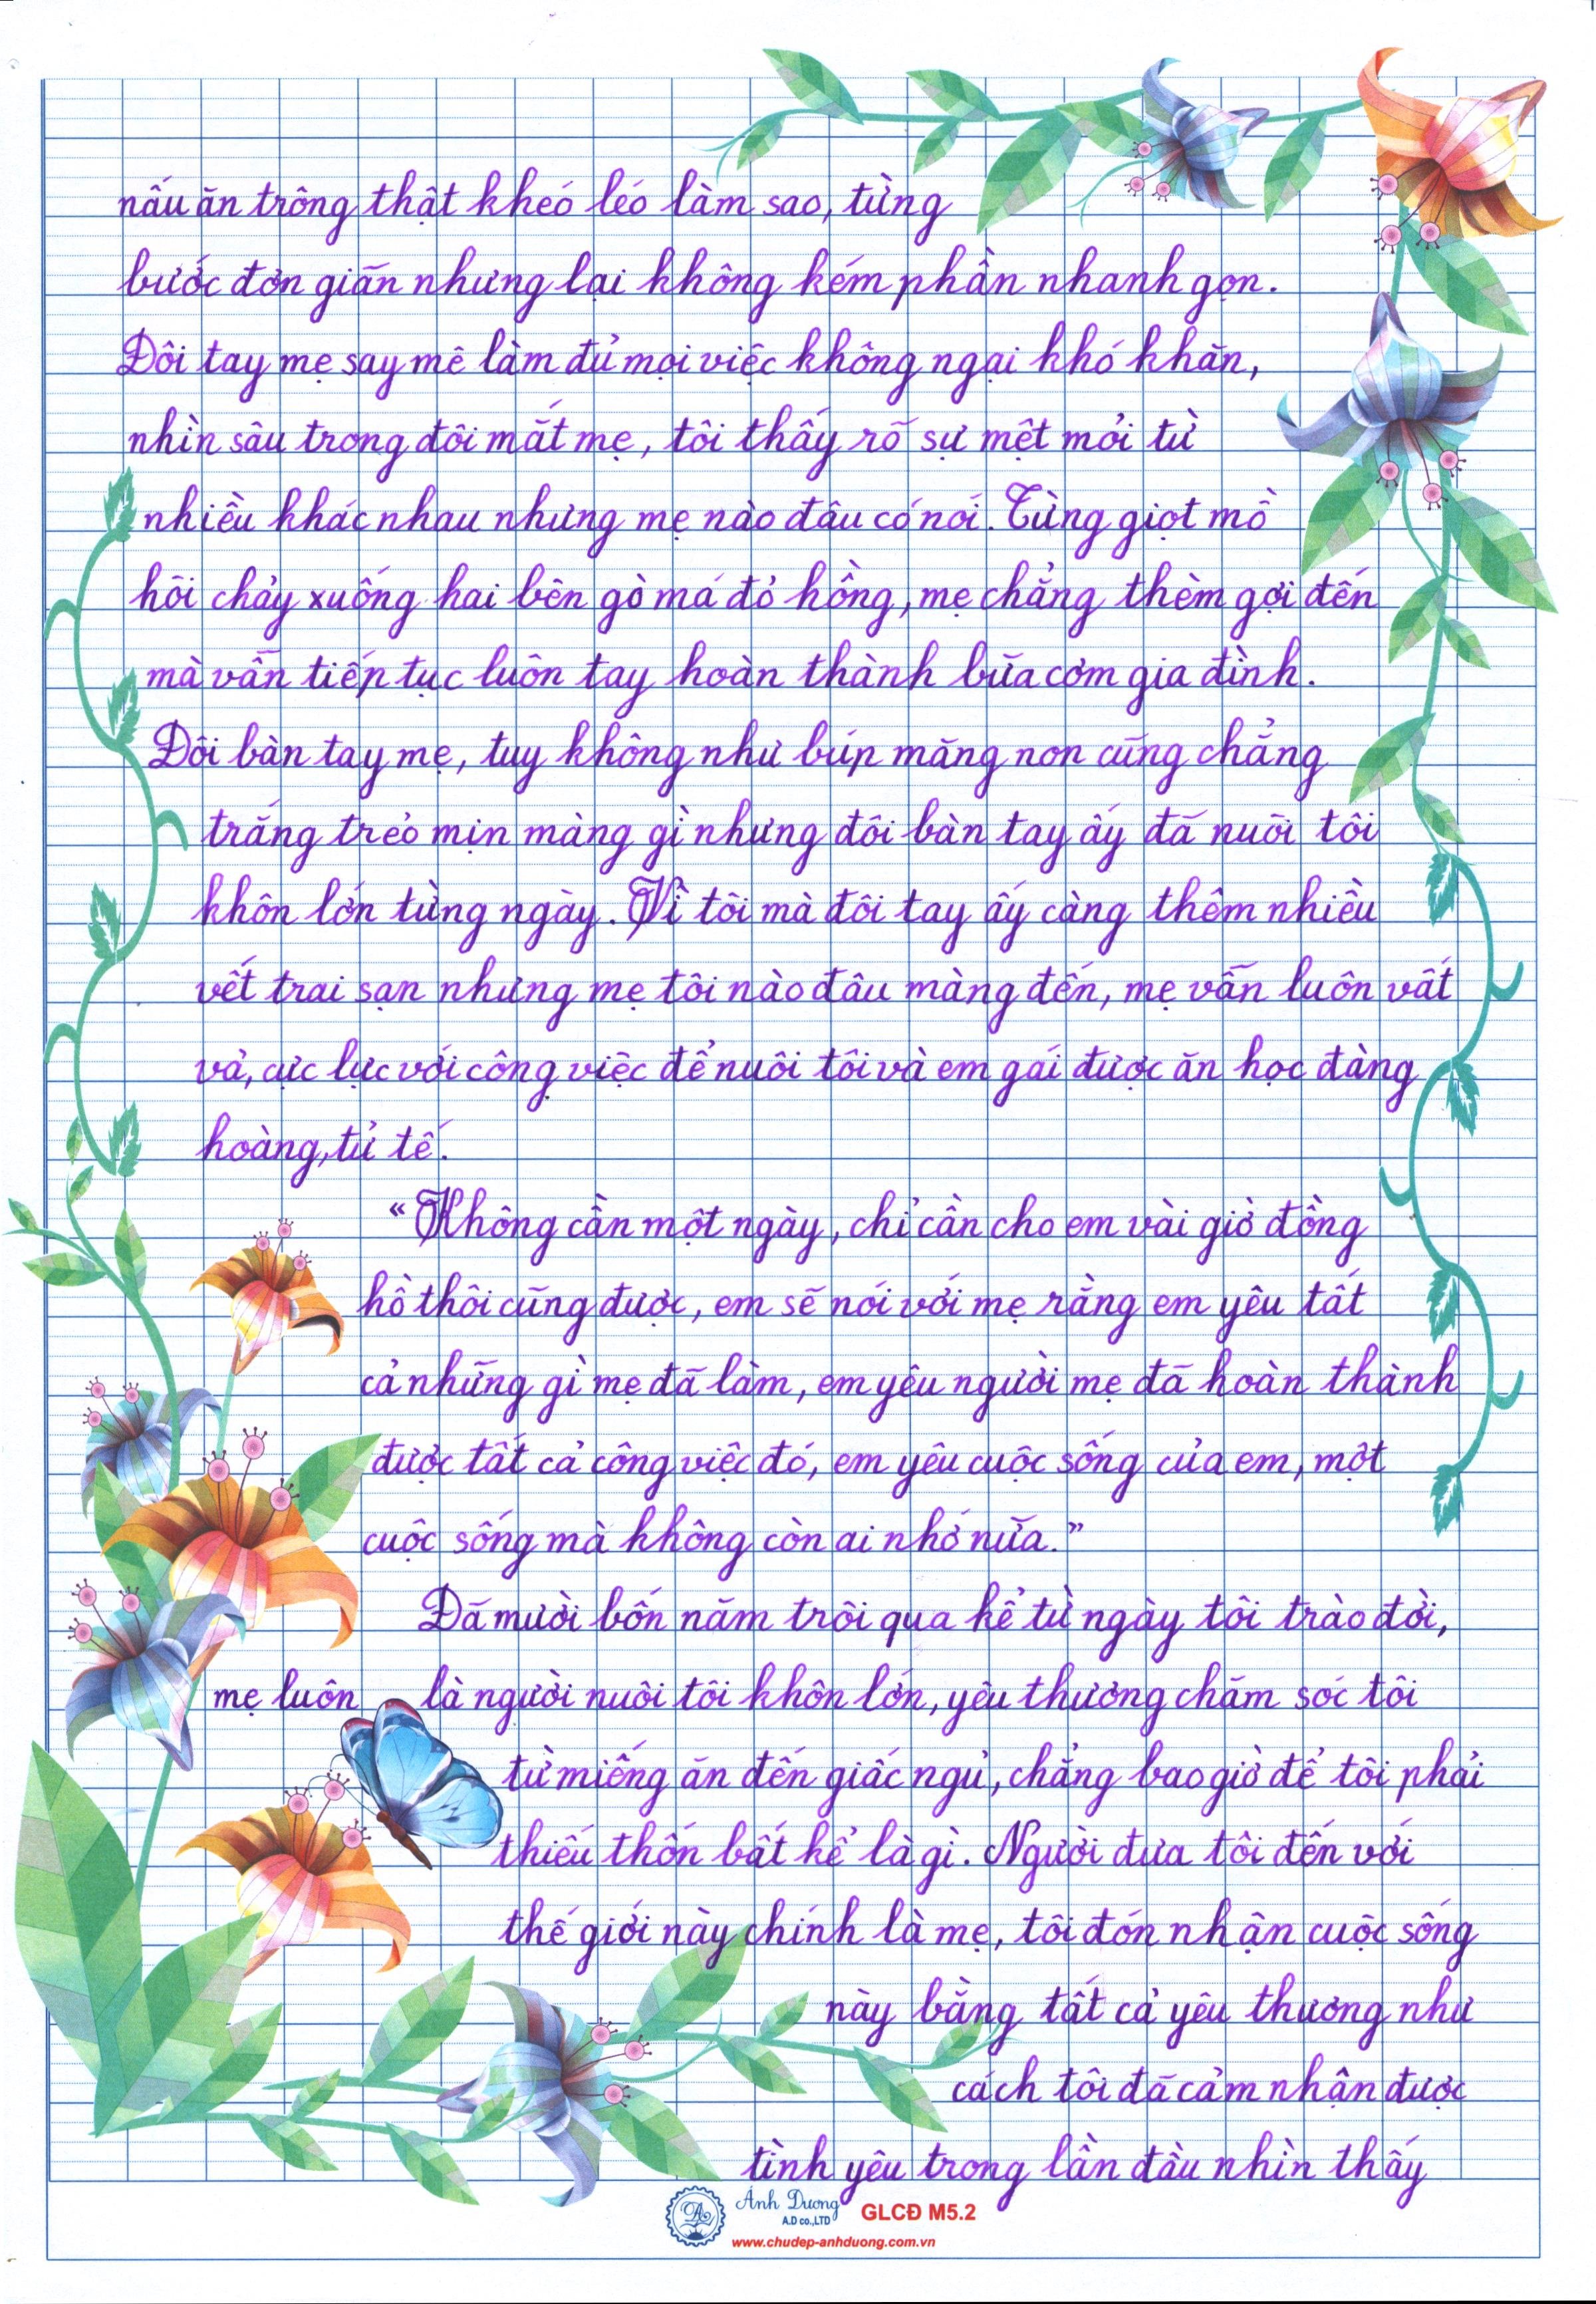 nấu ăn trông thật khéo léo làm sao, từng
bước đơn giãn nhưng lại không kém phần nhanh gọn.
Đôi tay mẹ say mê làm đủ mọi việc không ngại khó khăn,
nhìn sâu trong đôi mắt mẹ, tôi thấy rõ sự mệt mỏi từ
nhiều khác nhau nhưng mẹ nào đâu có nói. Từng giọt mồ
hôi chảy xuống hai bên gò má đỏ hồng, mẹ chẳng thèm gợi đến
mà vẫn tiếp tục luôn tay hoàn thành bữa cơm gia đình.
Đôi bàn tay mẹ, tuy không như búp măng non cũng chẳng
trắng trẻo mịn màng gì nhưng đôi bàn tay ấy đã nuôi tôi
khôn lớn từng ngày. Vì tôi mà đôi tay ấy càng thêm nhiều
vết trai sạn nhưng mẹ tôi nào đâu màng đến, mẹ vẫn luôn vất
vả, cực lực với công việc để nuôi tôi và em gái được ăn học đàng
hoàng, tử tế.
“Không cần một ngày, chỉ cần cho em vài giờ đồng
hồ thôi cũng được, em sẽ nói với mẹ rằng em yêu tất
cả những gì mẹ đã làm, em yêu người mẹ đã hoàn thành
được tất cả công việc đó, em yêu cuộc sống của em, một
cuộc sống mà không còn ai nhớ nữa.”
Đã mười bốn năm trôi qua kể từ ngày tôi trào đời,
mẹ luôn là người nuôi tôi khôn lớn, yêu thương chăm sóc tôi
từ miếng ăn đến giấc ngủ, chẳng bao giờ để tôi phải
thiếu thốn bất kể là gì. Người đưa tôi đến với
thế giới này chính là mẹ, tôi đón nhận cuộc sống
này bằng tất cả yêu thương như
cách tôi đã cảm nhận được
tình yêu trong lần đầu nhìn thấy
Ánh Dương
A.D co.,LTD
GLCĐ M5.2
www.chudep-anhduong.com.vn